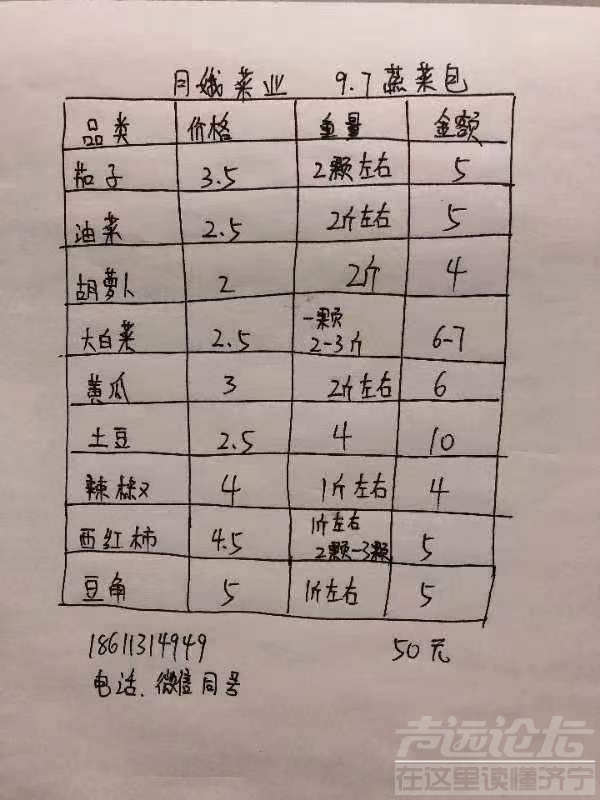 月娥菜业 9.7蔬菜包
品类 价格 重量 金额
茄子 3.5 2颗左右 5
油菜 2.5 2斤左右 5
胡萝卜 2 2斤 4
大白菜 2.5 一颗 2-3斤 6-7
黄瓜 3 2斤左右 6
土豆 2.5 4 10
辣椒 4 1斤左右 4
西红柿 4.5 1斤左右 2颗-3颗 5
豆角 5 1斤左右 5
18611314949 50元
电话.微信同号
声远论坛
在这里读懂济宁